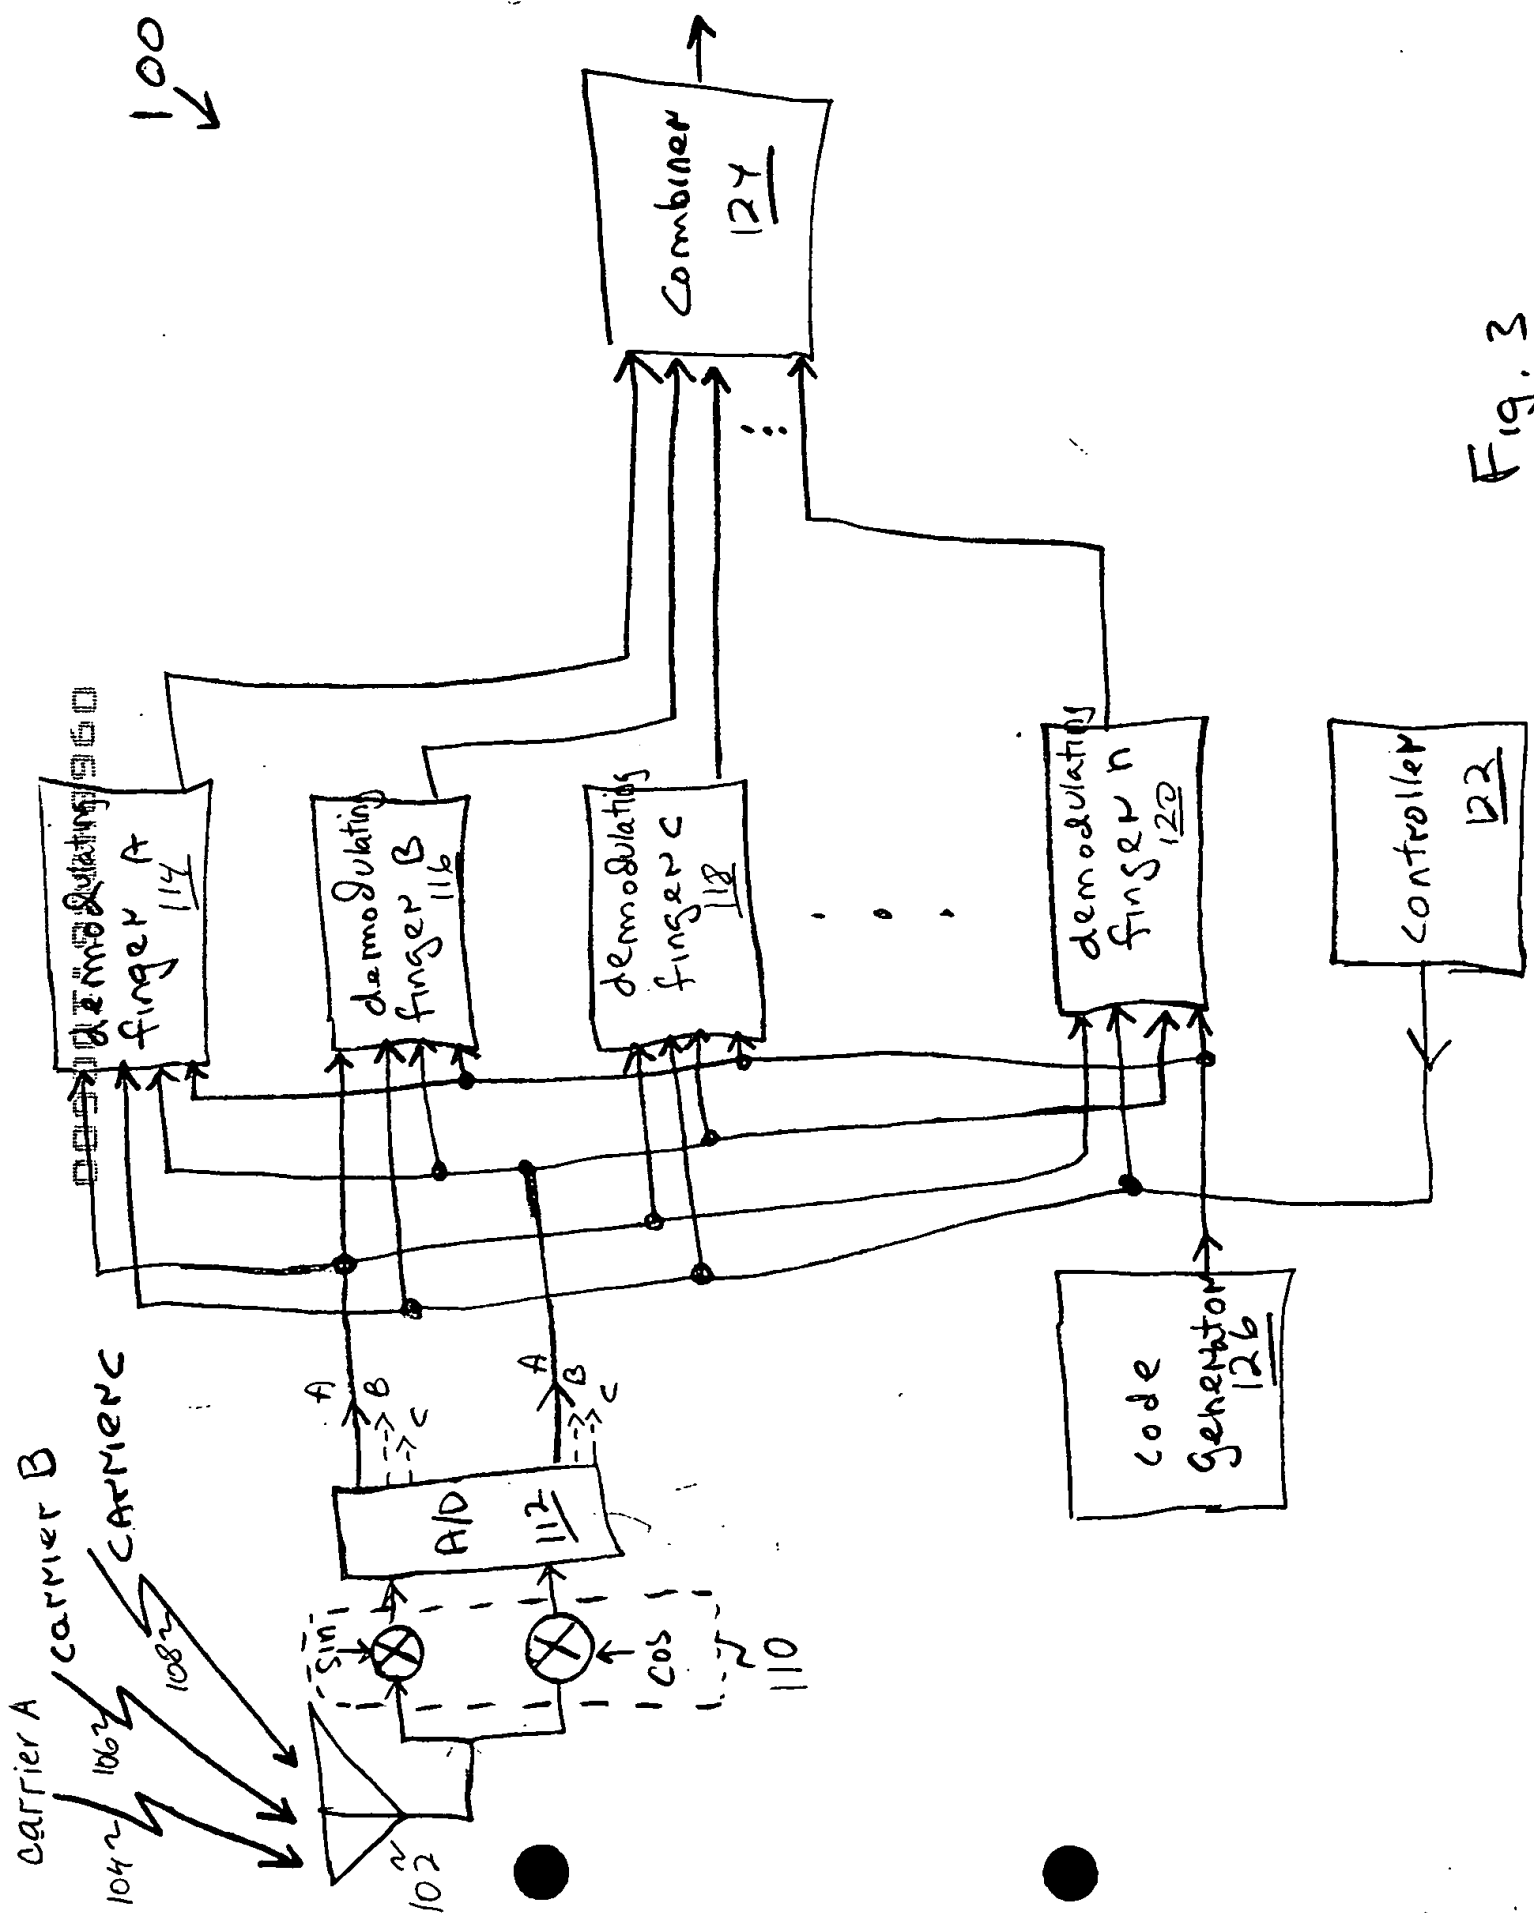 100
carrier A
104
carrier B
106
carrier C
108
102
sin
cos
110
A/D
112
A
B
C
A
B
C
demodulating
finger A
114
demodulating
finger B
116
demodulating
finger C
118
demodulating
finger n
120
controller
122
code
generator
126
combiner
124
Fig. 3